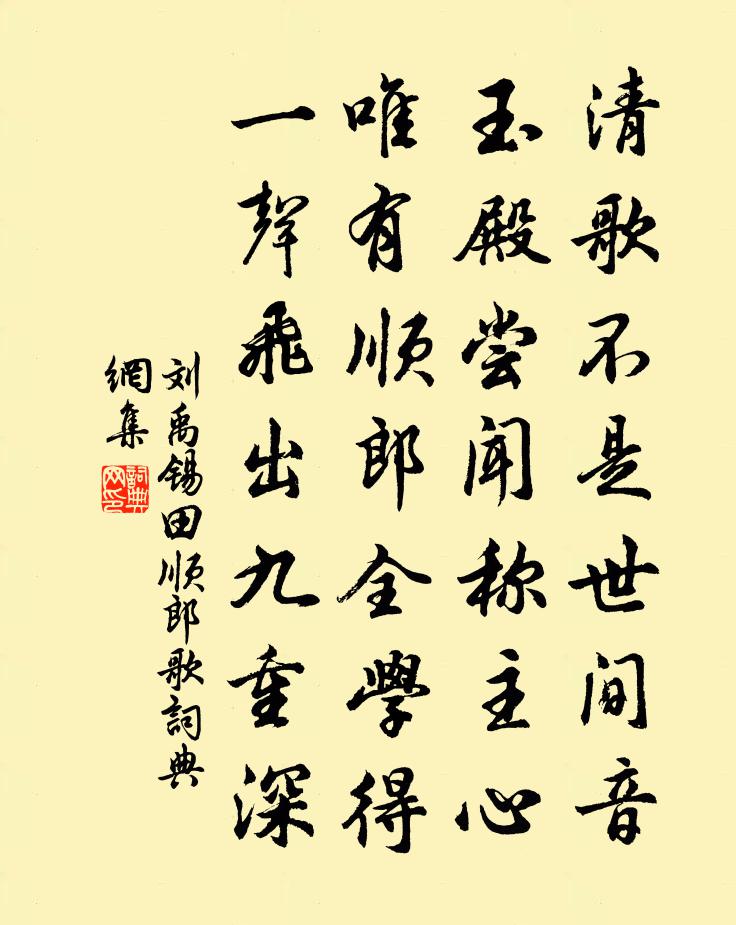 清歌不是世间音
玉殿尝闻称主心
唯有顺郎全學得
一聲飛出九重深
刘禹锡田顺郎歌詞典
網集
詞典
网印